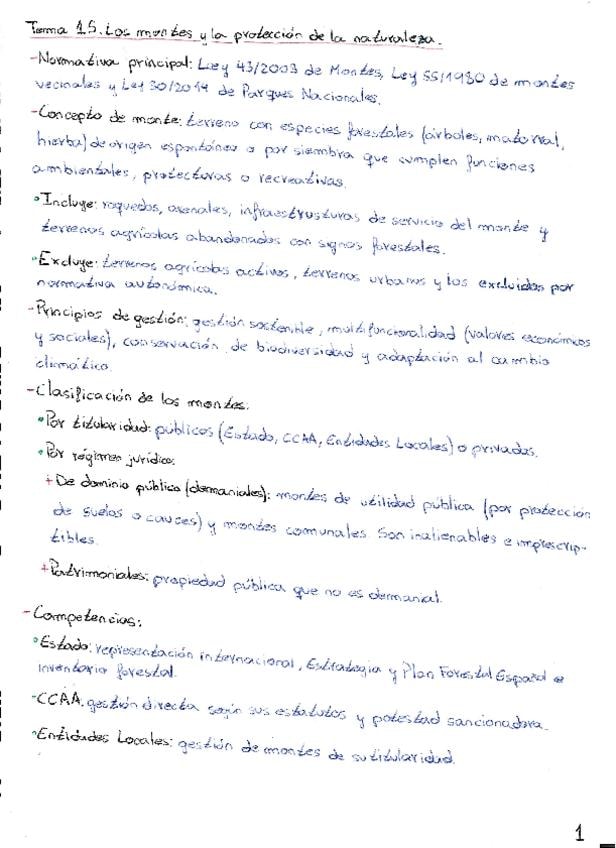 Tema 15. Los montes y la protección de la naturaleza.
-Normativa principal: Ley 43/2003 de Montes, Ley 55/1980 de montes
vecinales y Ley 30/2014 de Parques Nacionales.
-Concepto de monte: terreno con especies forestales (árboles, matorral,
hierba) de origen espontáneo o por siembra que cumplen funciones
ambientales, protectoras o recreativas.
•Incluye: roquedos, arenales, infraestructuras de servicio del monte y
terrenos agrícolas abandonados con signos forestales.
•Excluye: terrenos agrícolas activos, terrenos urbanos y los excluidos por
normativa autonómica.
-Principios de gestión: gestión sostenible, multifuncionalidad (valores económicos
y sociales), conservación de biodiversidad y adaptación al cambio
climático.
-Clasificación de los montes:
•Por titularidad: públicos (Estado, CCAA, Entidades Locales) o privados.
•Por régimen jurídico:
+De dominio público (demaniales): montes de utilidad pública (por protección
de suelos o cauces) y montes comunales. Son inalienables e imprescrip-
tibles.
+Patrimoniales: propiedad pública que no es demanial.
-Competencias:
•Estado: representación internacional, Estrategia y Plan Forestal Español e
inventario forestal.
-CCAA: gestión directa según sus estatutos y potestad sancionadora.
•Entidades Locales: gestión de montes de su titularidad.
1